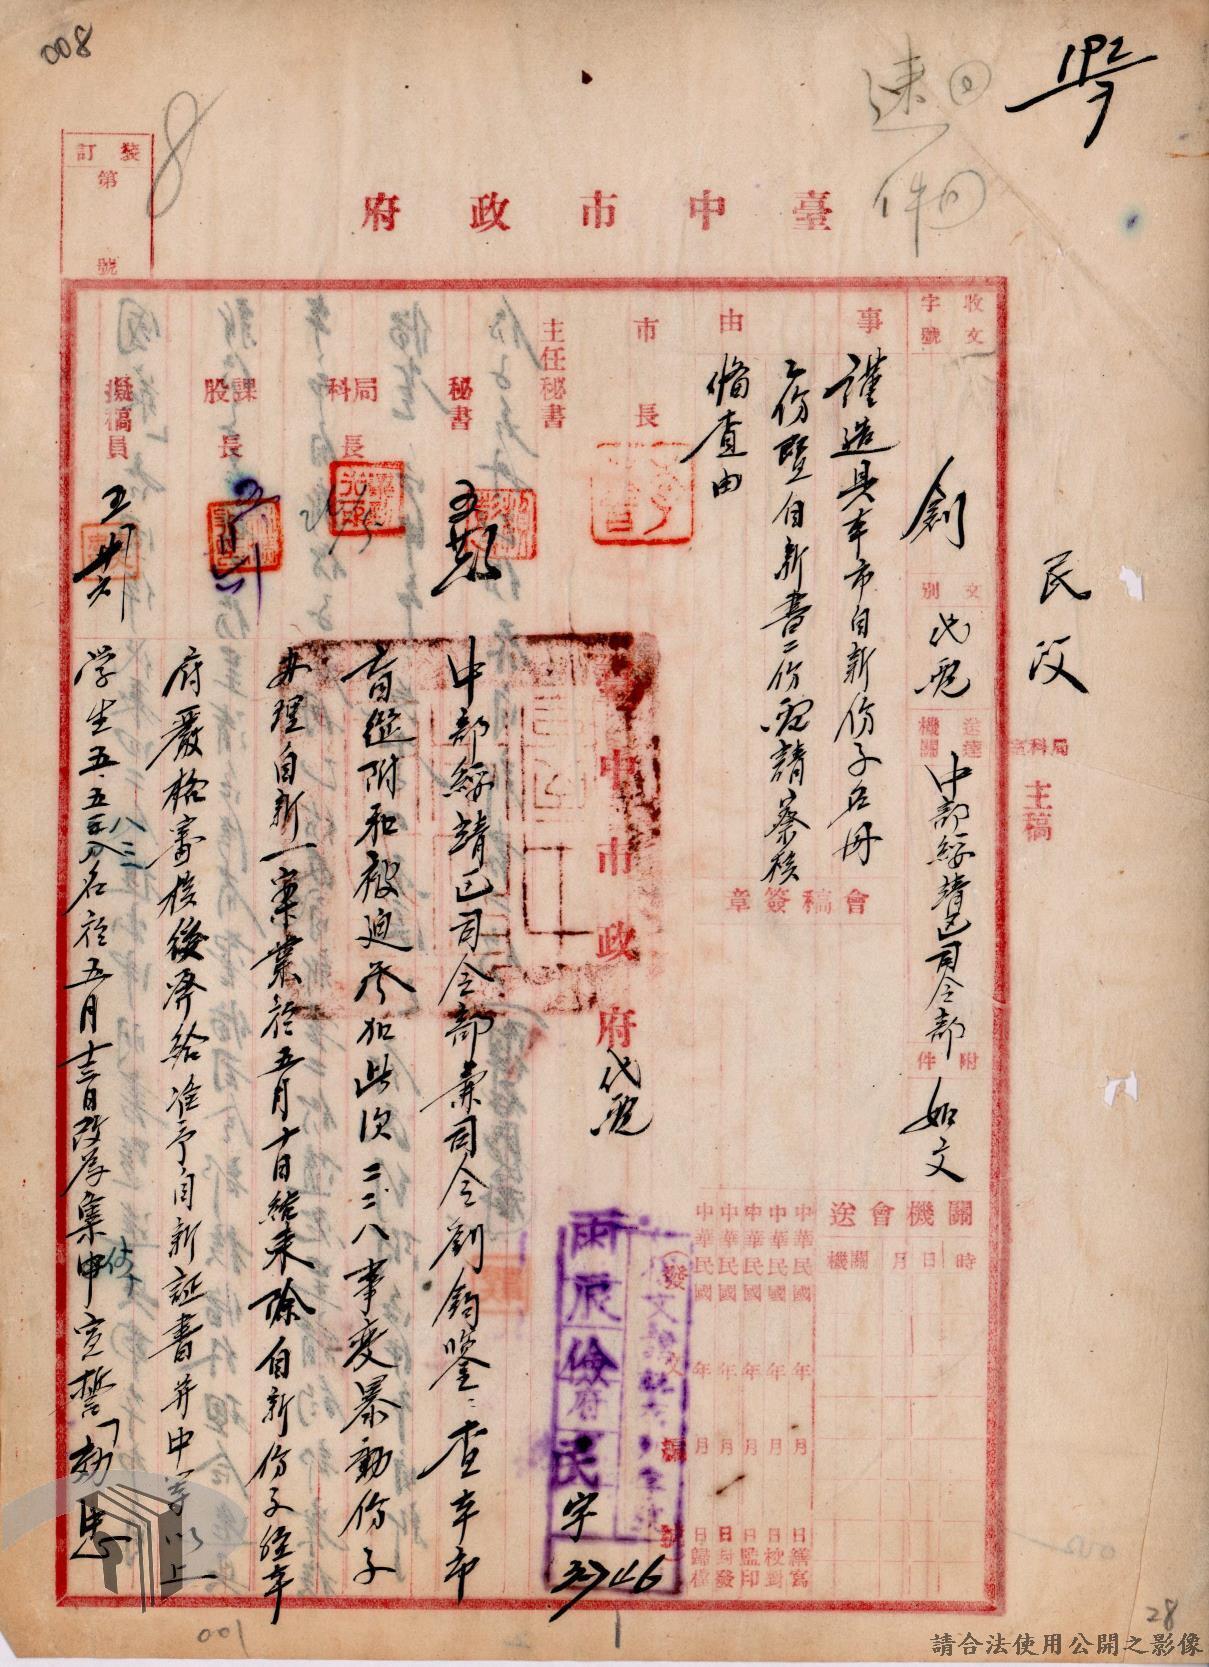 008
192/7
速件
8
裝訂
第 號
臺中市政府
民政
局科室 主稿
收文 字號
創
文別
代電
送達機關
中部綏靖區司令部
附件
如文
事由
謹造具本市自新份子名冊
乙份暨自新書二份電請察核
備查由
會稿簽章
關機會送
時 日 月 關機
中華民國 年 月 日繕寫
中華民國 年 月 日校對
中華民國 年 月 日監印
中華民國 年 月 日封發
中華民國 年 月 日歸檔
市長
主任秘書
秘書
局科長
課股長
擬稿員
臺中市政府代電
發文編號
雨辰儉府民字3746
中部綏靖區司令部兼司令劉鈞鑒：查本市
盲從附和被迫參加此次二二八事變暴動份子
办理自新一案業於五月十日結束除自新份子經本
府嚴格審核後發給准予自新証書并中等以上
学生五.五八三名於五月十三日改序集中宣誓「効忠
001
28
請合法使用公開之影像